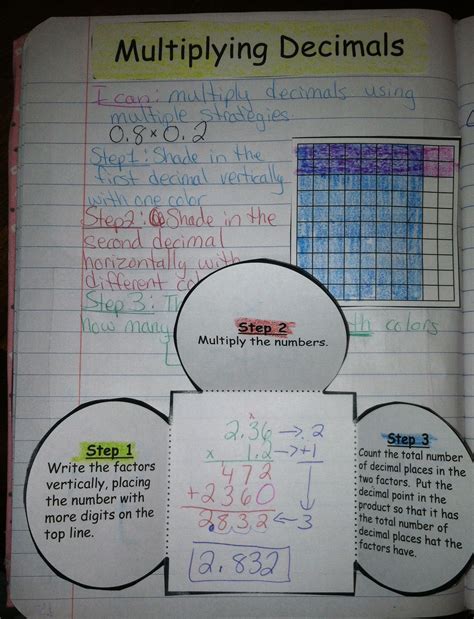 Multiplying Decimals
I can: multiply decimals using
multiple strategies
0.8 x 0.2
Step 1: Shade in the
first decimal vertically
with one color
Step 2: Shade in the
second decimal
horizontally with
different
Step 3:
how many
colors
Step 2
Multiply the numbers.
Step 1
Write the factors
vertically, placing
the number with
more digits on the
top line.
2.36 → 2
x 1.2 → +1
472
+2360
2.832 ← 3
2.832
Step 3
Count the total number
of decimal places in the
two factors. Put the
decimal point in the
product so that it has
the total number of
decimal places hat the
factors have.